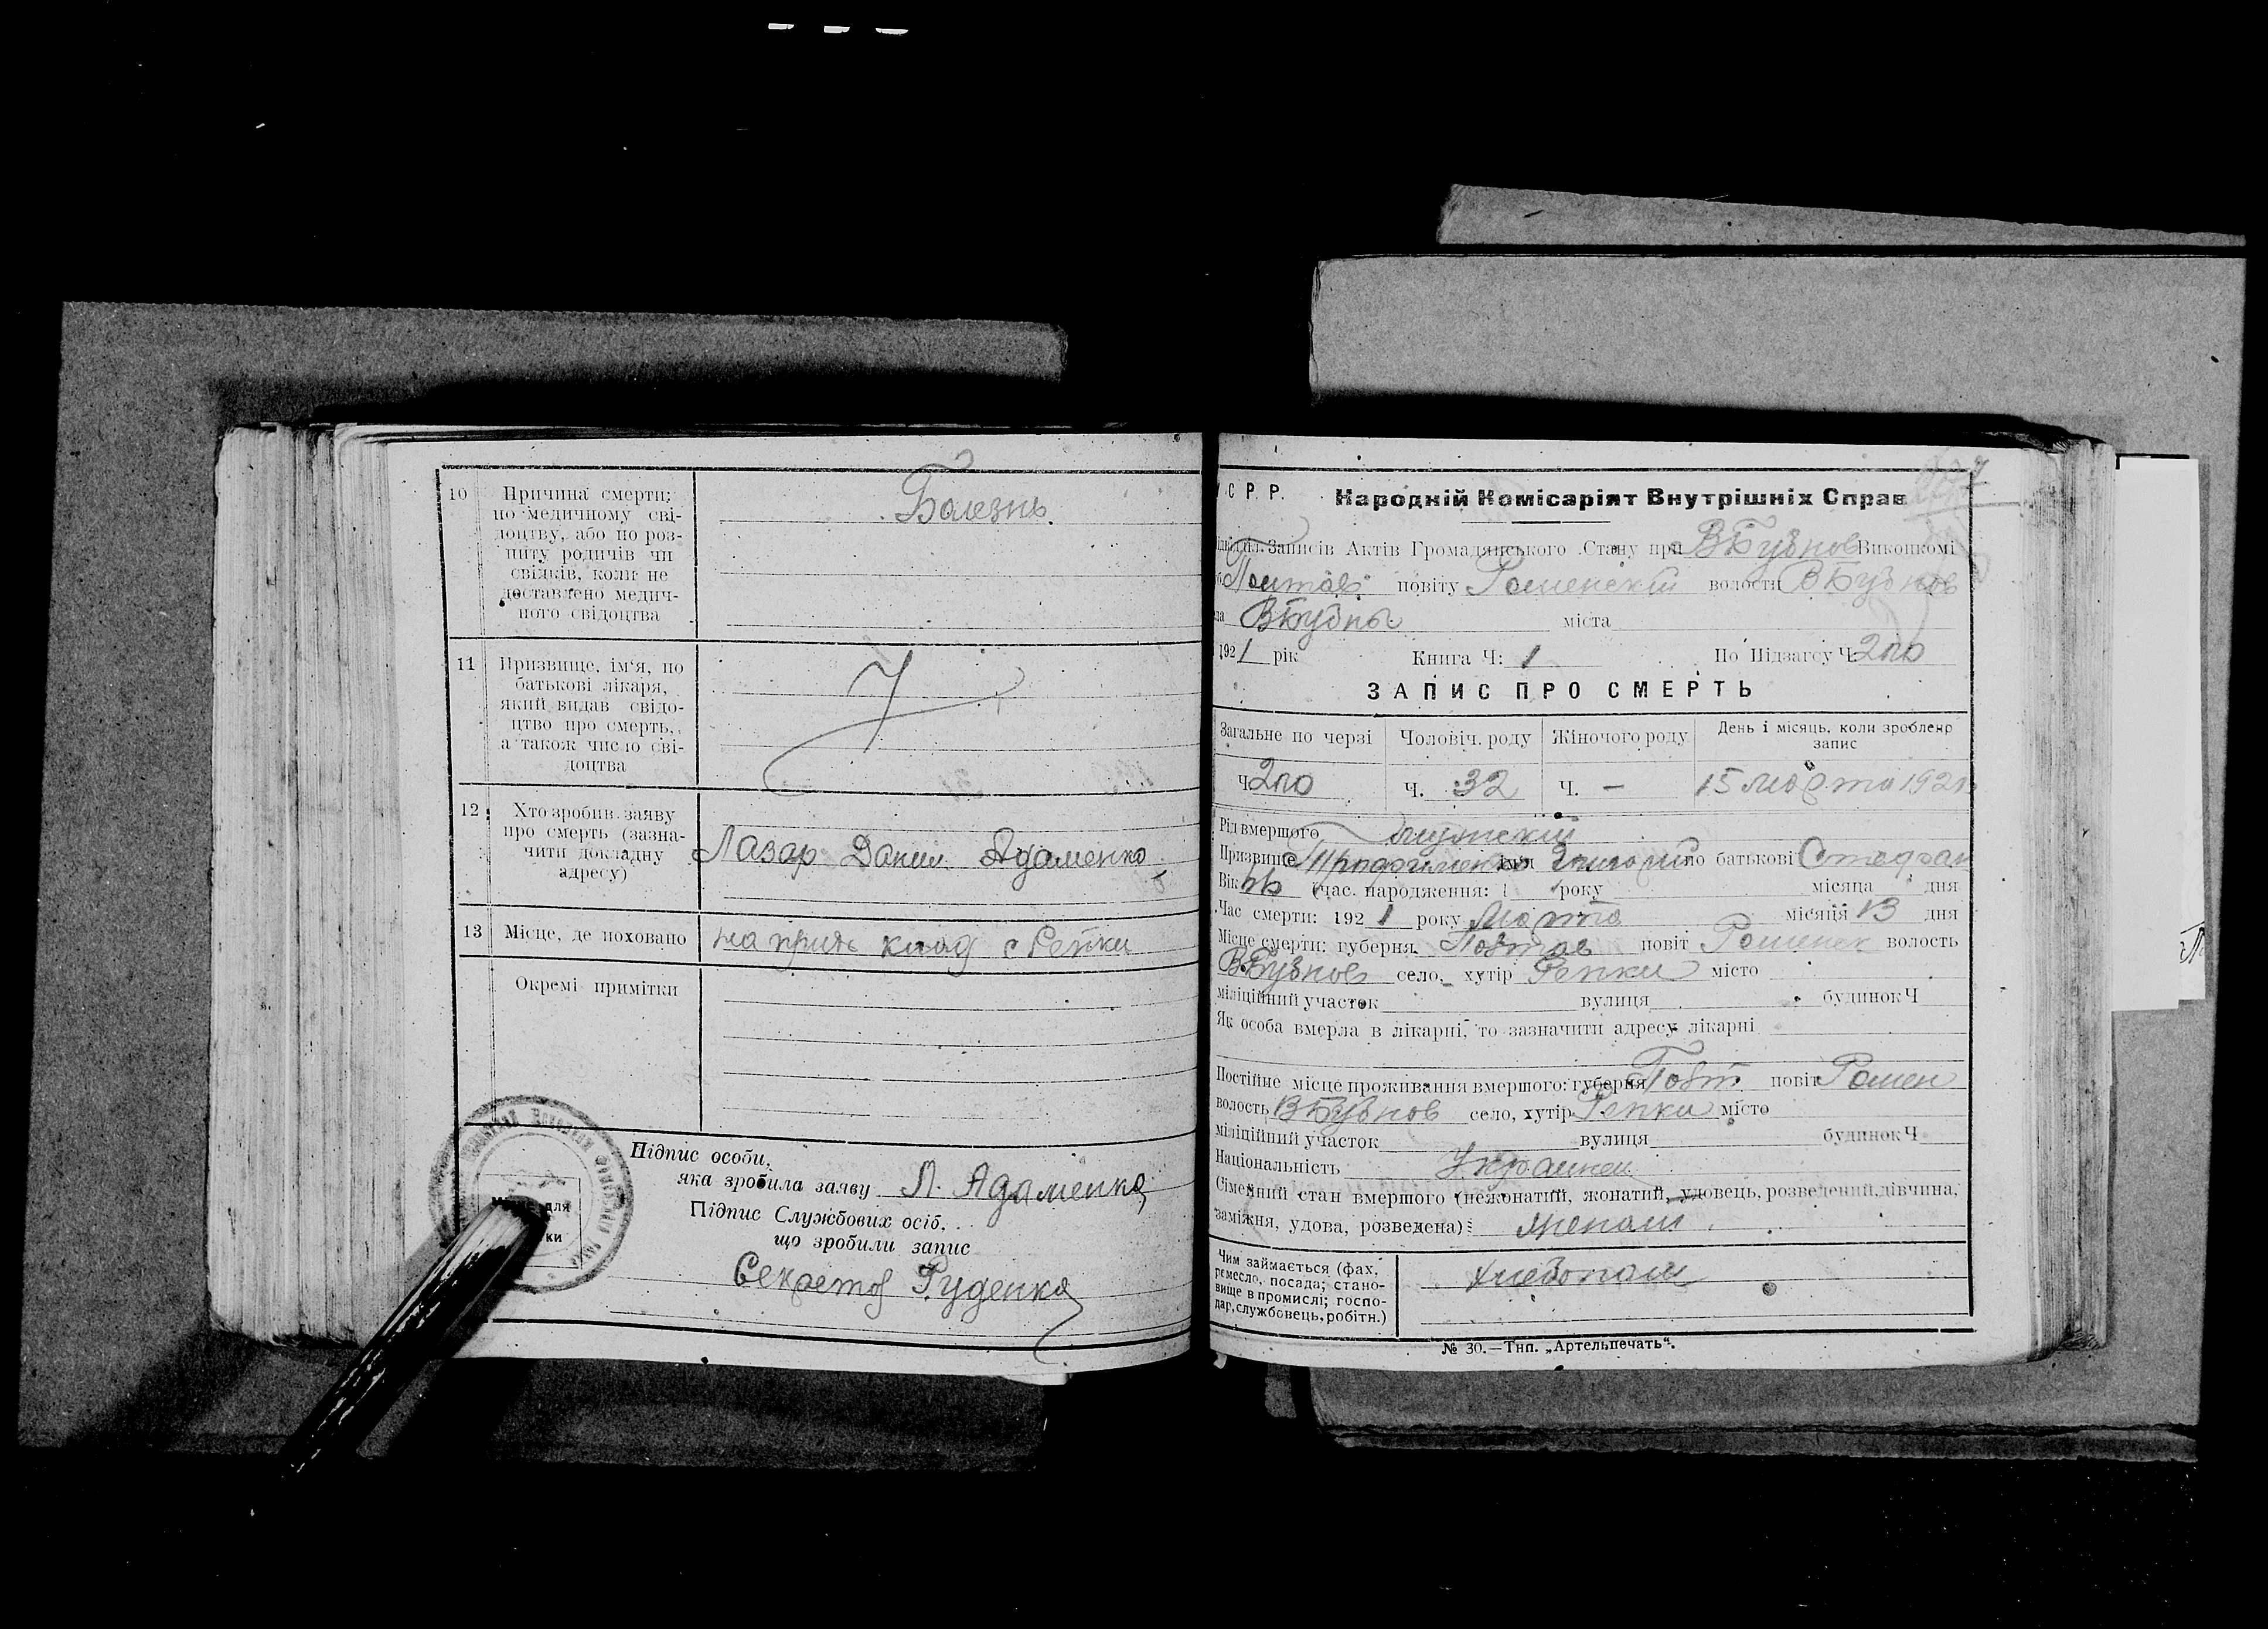 10 Причина смерти;
по медичному сві-
доцтву, або по роз-
питу родичів чи
свідків, коли не
доставлено медич-
ного свідоцтва
Болезнь.
11 Призвище, ім'я, по
батькові лікаря,
який видав свідо-
цтво про смерть,
а також число сві-
доцтва
12 Хто зробив заяву
про смерть (зазна-
чити докладну
адресу)
Лазар Данил Адаменко
13 Місце, де поховано
на прих клад с Репки
Окремі примітки
Підпис особи,
яка зробила заяву Л. Адаменко
Підпис Службових осіб,
що зробили запис
Секретар Руденко
для
ки
С. Р. Р. Народній Комісаріят Внутрішніх Справ
Відділ Записів Актів Громадянського Стану при ВБубнов Виконкомі
Полтав повіту Роменский волости ВБубнов
ВБубны міста
1921 рік Книга Ч: 1 По Підзагсу Ч.
ЗАПИС ПРО СМЕРТЬ
Загальне по черзі Чоловіч. роду Жіночого роду День і місяць, коли зроблено запис
Ч. Ч. 32 Ч. — 15 марта 1921
Рід вмершого мужский
Призвище ім'я Григорий по батькові Стефан
Вік (час. народження: року місяця дня
Час смерти: 1921 року Марта місяця 13 дня
Місце смерти: губерня Полтав повіт Роменск волость
ВБубнов село, хутір Репки місто
міліційний участок вулиця будинок Ч
Як особа вмерла в лікарні, то зазначити адресу лікарні
Постійне місце проживання вмершого: губерня Полт повіт Ромен
волость ВБубнов село, хутір Репки місто
міліційний участок вулиця будинок Ч
Національність Украинец
Сімейний стан вмершого (нежонатий, жонатий, удовець, розведений, дівчина,
заміжня, удова, розведена): Женат.
Чим займається (фах,
ремесло, посада; стано-
вище в промислі; госпо-
дар, службовець, робітн.)
Хлебопаш
№ 30.—Тип. „Артельпечать“.